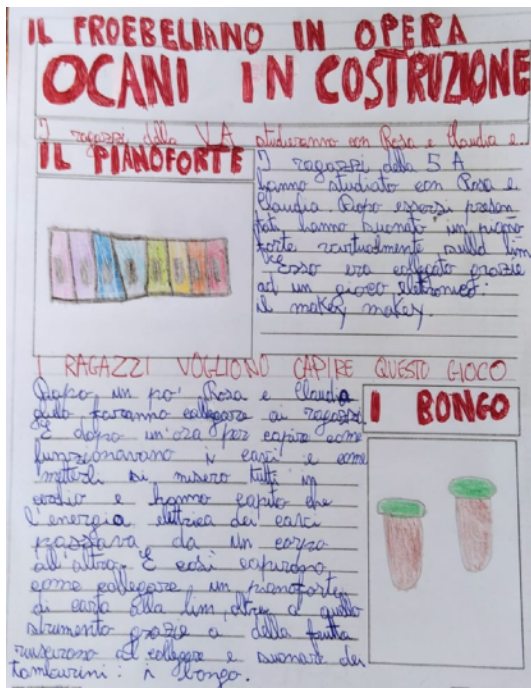 IL FROEBELIANO IN OPERA
OCANI IN COSTRUZIONE
I ragazzi della VA studieranno con Rosa e Claudia e
IL PIANOFORTE
I ragazzi della 5 A
hanno studiato con Rosa e
Claudia. Dopo essersi presen
tati hanno suonato un piano
forte virtualmente sulla lim
Esso era collegato grazie
ad un gioco elettronico:
il makey makey.
I RAGAZZI VOGLIONO CAPIRE QUESTO GIOCO
Dopo un po' Rosa e Claudia
faranno collegare ai ragazzi
E dopo un'ora per capire come
funzionavano i cavi e come
metterli si misero tutti in
cerchio e hanno capito che
l'energia elettrica dei cavi
passava da un corpo
all'altro. E così capirono
come collegare un pianoforte
di carta alla lim, oltre a quello
strumento grazie a della frutta
riuscirono a collegare e suonare dei
tamburini: i bongo.
I BONGO